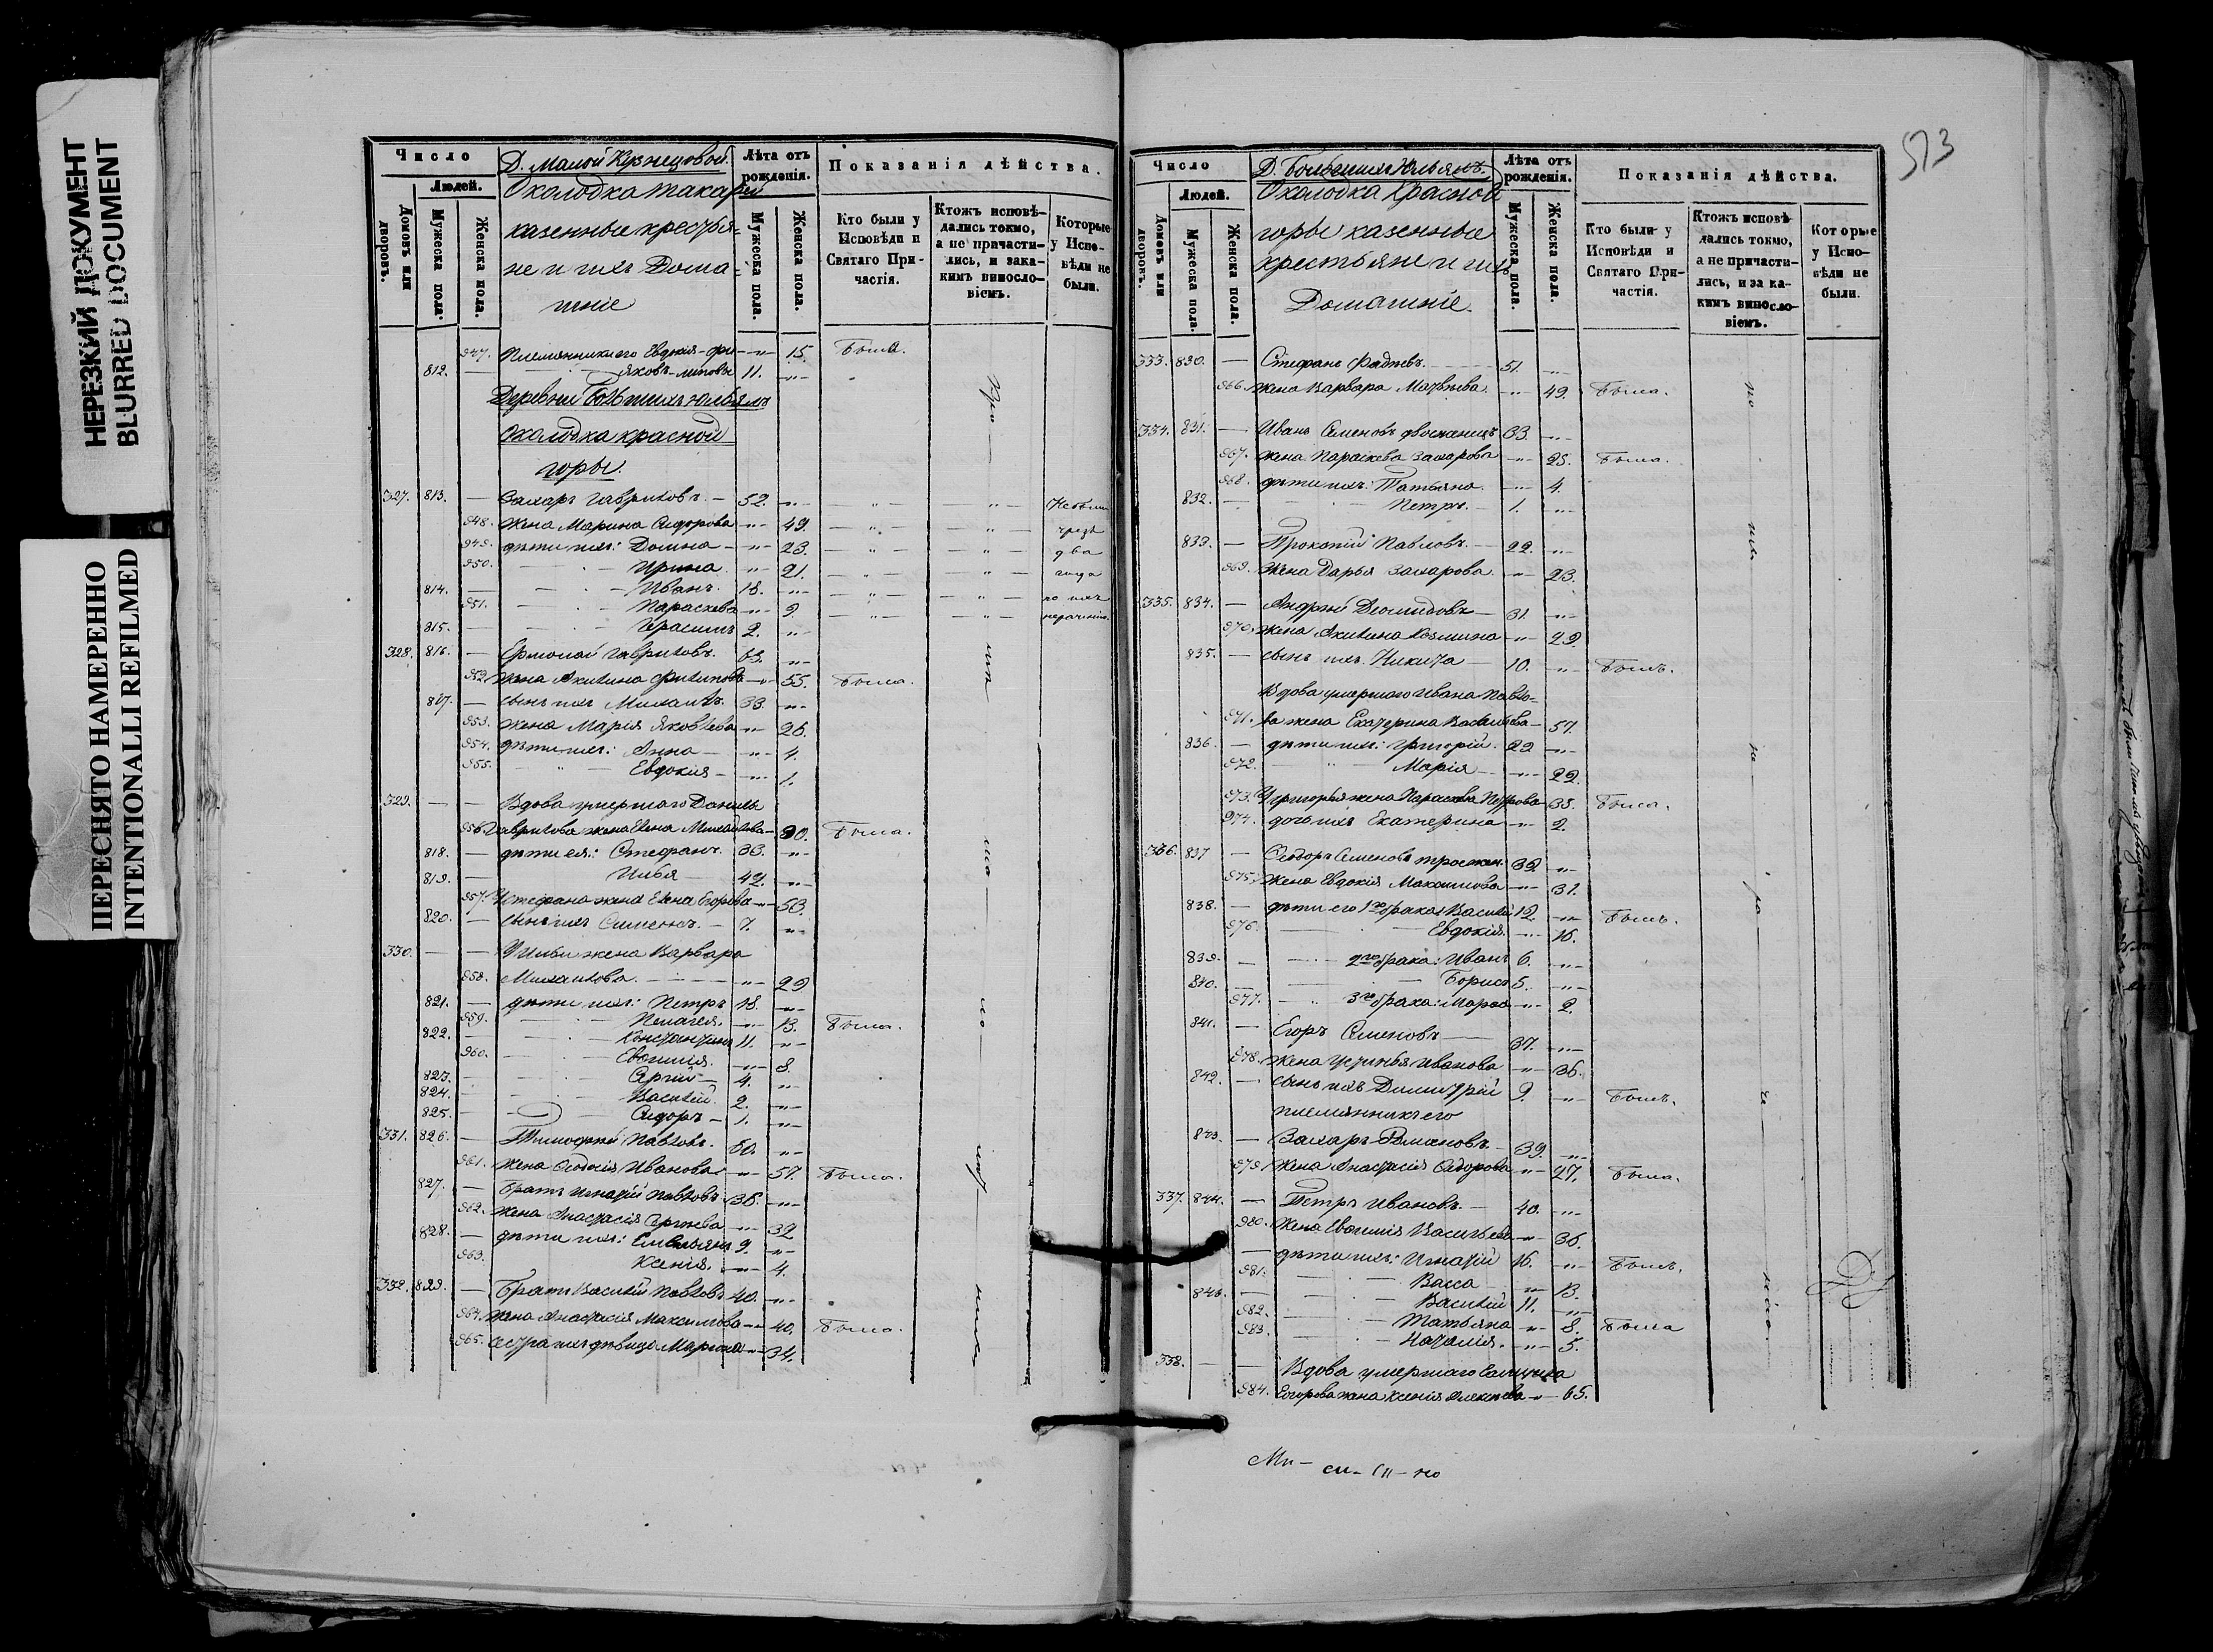 НЕРЕЗКИЙ ДОКУМЕНТ
BLURRED DOCUMENT
ПЕРЕСНЯТО НАМЕРЕННО
INTENTIONALLI REFILMED
Число
Людей.
Домовъ или дворовъ.
Мужеска пола.
Женска пола.
Д. Малой Кузнецовой.
Околодка Макарья
казенные крестья-
не и ихъ Дома-
шніе
Лѣта отъ рожденія.
Мужеска пола.
Женска пола.
Показанія дѣйства.
Кто были у Исповѣди и Святаго Причастія.
Ктожъ исповѣдались токмо, а не причастились, и закакимъ винословіемъ.
Которые у Исповѣди не были.
947. Племянники его Евдокія 15. Была.
812. — Яковъ 11. "
Деревни Большихъ
Околодка красной
горы.
327. 813. — Захаръ Гавриловъ. 52. "
948. жена Марина Сидорова " 49.
949. дѣти ихъ: Домна " 23.
950. Ирина " 21.
814. — Иванъ 18. "
951. Параскева " 9.
815. — Герасимъ 2. "
Небыли
чрезъ
два
года
по ихъ
нераченію.
328. 816. — Ермолай Гавриловъ. 63. "
952. жена Акилина Филипова " 55. Была.
817. — сынъ ихъ Михаилъ. 33. "
953. жена Марія Яковлева " 26.
954. дѣти ихъ: Анна " 4.
955. Евдокія " 1.
329. — — Вдова умершаго Данилы
956. Гаврилова жена Елена Михайлова 80. Была.
818. — дѣти ея: Стефанъ. 53. "
819. — Илья 42. "
957. У Стефана жена Елена Егорова " 53.
820. — сынъ ихъ Симеонъ. 7. "
330. — — У Ильи жена Варвара
958. Михайлова. " 29
821. — дѣти ихъ: Петръ 18. "
959. Пелагея. " 13. Была.
822. — Константинъ 11. "
960. Евфимія. " 8.
823. — Сергій 4. "
824. — Василій. 2. "
825. — Сидоръ 1. "
331. 826. — Тимофей Павловъ. 60. "
961. жена Феодосія Иванова " 57. Была.
827. — Братъ Игнатій Павловъ 36. "
962. жена Анастасія Сергѣева " 32
828. — дѣти ихъ: Емельянъ 9. "
963. Ксенія. " 4.
332. 829. — Братъ Василій Павловъ 40. "
964. жена Анастасія Максимова " 40. Была.
965. сестра ихъ дѣвица Марина " 34.
573
Число
Людей.
Домовъ или дворовъ.
Мужеска пола.
Женска пола.
Околодка Красной
горы казенные
крестьяне и ихъ
Домашніе.
Лѣта отъ рожденія.
Мужеска пола.
Женска пола.
Показанія дѣйства.
Кто были у Исповѣди и Святаго Причастія.
Ктожъ исповѣдались токмо, а не причастились, и за какимъ винословіемъ.
Которые у Исповѣди не были.
333. 830. — Стефанъ Фадѣевъ. 51. "
966. жена Варвара Матвѣева. " 49. Была.
334. 831. — Иванъ Семеновъ двоеженецъ 33. "
967. жена Параскева Захарова " 25. Была.
968. дѣти ихъ: Татьяна. " 4.
832. — Петръ. 1. "
833. — Прокопій Павловъ. 22. "
969. Жена Дарья Захарова. " 23.
335. 834. — Андрей Деомидовъ 31. "
970. жена Акилина Козмина " 29.
835. — сынъ ихъ Никита 10. " Былъ.
Вдова умершаго Ивана Павло-
971. ва жена Екатерина Васильева 57.
836. — дѣти ихъ: Григорій. 29. "
972. Марія " 22.
973. У Григорья жена Параскева Петрова 33. Была.
974. дочь ихъ Екатерина " 2.
336. 837 — Феодоръ Семеновъ троежен. 39. "
975. жена Евдокія Максимова " 31.
838. — дѣти его 1го брака: Василій 12. " Былъ.
976. Евдокія. " 16.
839. — 2го брака: Иванъ 6. "
840. — Борисъ 5. "
977. 3го брака: Марѳа " 2.
841. — Егоръ Семеновъ 37. "
978. жена Устинья Иванова " 36.
842. — сынъ ихъ Димитрій 9. " Былъ.
племянникъ его
843. — Захаръ Романовъ. 39. "
979. жена Анастасія Сидорова " 27. Была.
337. 844. — Петръ Ивановъ. 40. "
980. жена Евфимія Васильева " 36.
— дѣти ихъ: Игнатій 16. " Былъ.
981. Васса " 13.
846. — Василій 11. "
982. Татьяна " 8. Была
983. Наталія. " 5.
338. — — Вдова умершаго
984. Егорова жена Ксенія " 65.